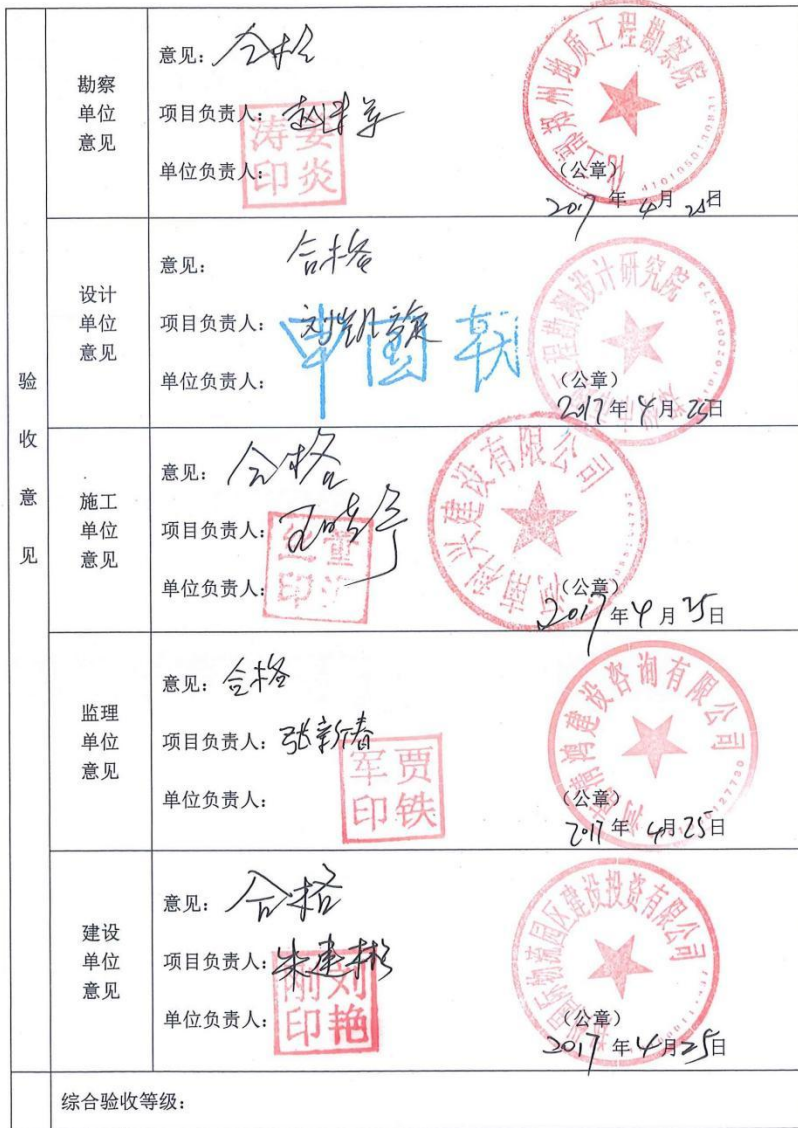 验收意见
勘察单位意见
意见：合格
项目负责人：
单位负责人：
姜炎涛印
化工部郑州地质工程勘察院
（公章）
2017年4月25日
设计单位意见
意见：合格
项目负责人：刘凯旋
单位负责人：
（公章）
2017年4月25日
施工单位意见
意见：合格
项目负责人：
单位负责人：
河南科兴建设有限公司
（公章）
2017年4月25日
监理单位意见
意见：合格
项目负责人：张新春
单位负责人：
贾铁军印
建设咨询有限公司
（公章）
2017年4月25日
建设单位意见
意见：合格
项目负责人：朱建彬
单位负责人：
刘艳刚印
国际物流园区建设投资有限公司
（公章）
2017年4月25日
综合验收等级：